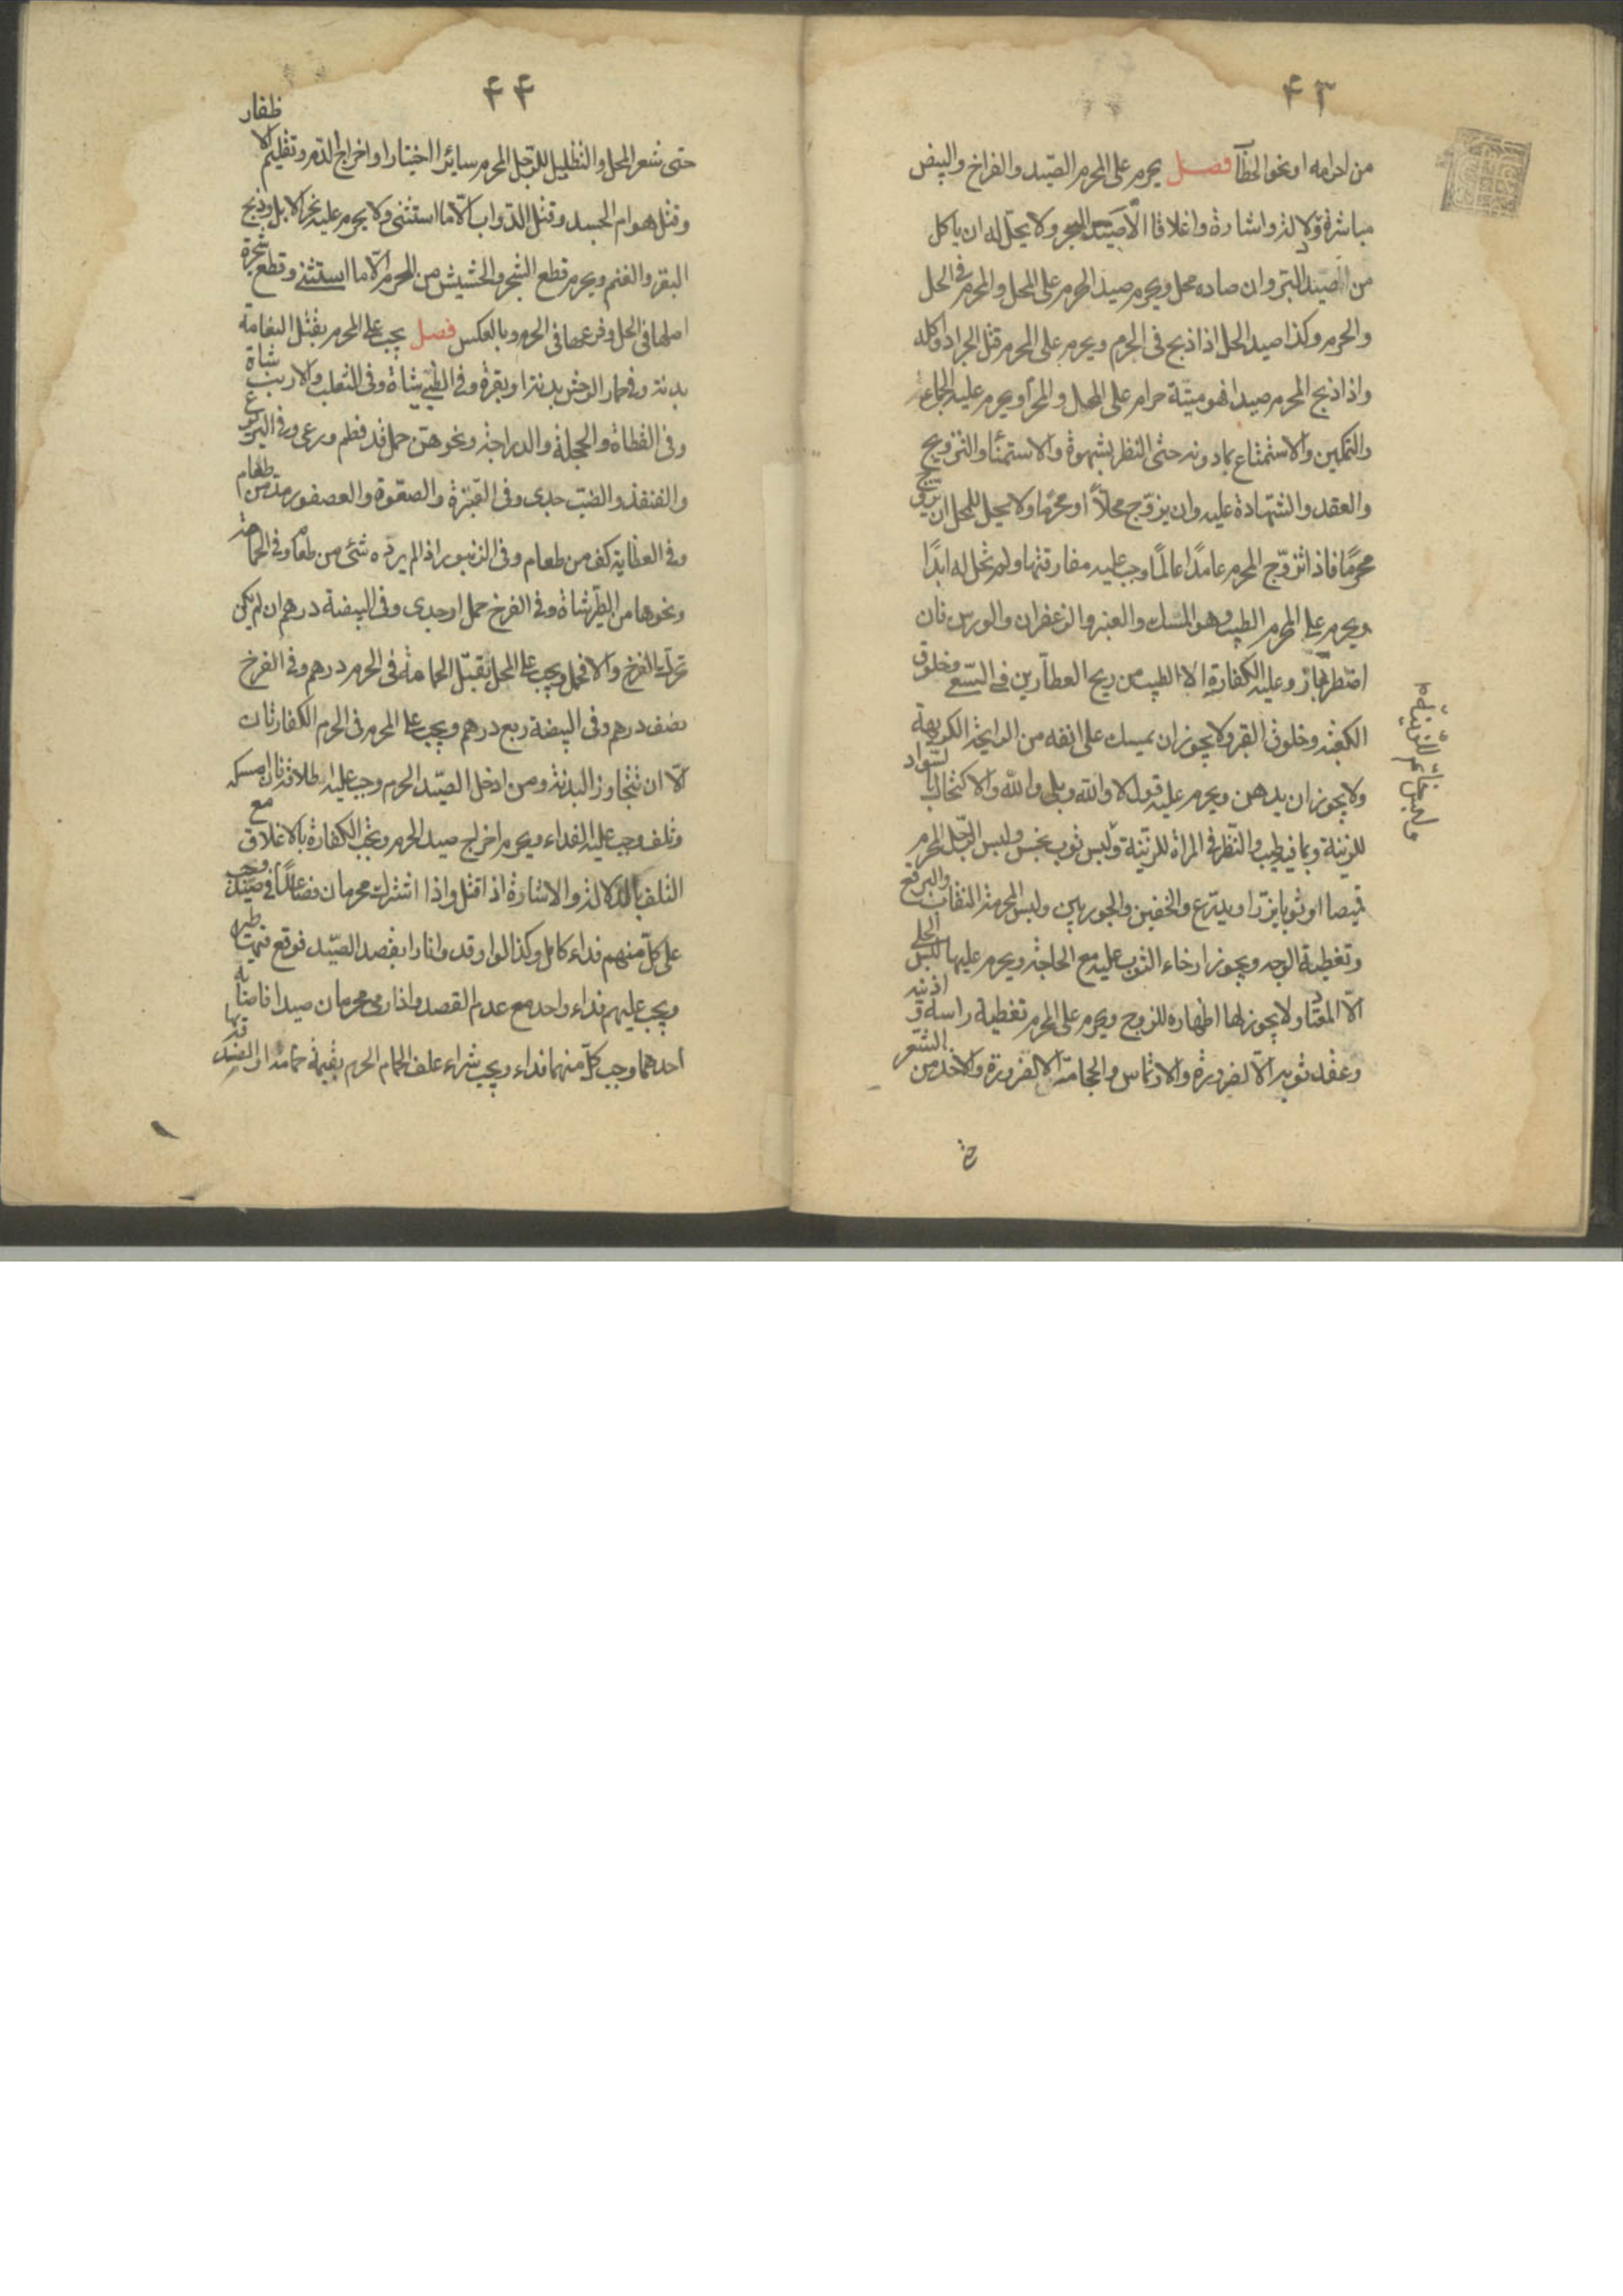 ۴۳
من احرامه او نحو الخطآ فصل يحرم على المحرم الصّيد والفراخ والبيض
مباشرة ودلالة واشارة واغلاقا الّا صَيد البحر ولا يحلّ له ان ياكل
من الصّيد البرّ وان صاده محل ويحرم صيد الحرم على المحل والمحرم فى الحل
والحرم وكذا صيد الحل اذا ذبح فى الحرم ويحرم على المحرم قتل الجراد واكله
واذا ذبح المحرم صيدا فهو ميتة حرام على المحل والمحرم ويحرم عليه الجماع
والتمكين والاستمتاع بما دونه حتى النظر بشهوة والاستمناء والتزويج
والعقد والشّهادة عليه وان يزوّج محلاً او محرما ولا يحل للمحل ان يزوّج
محرمًا فاذا تزوّج المحرم عامدًا عالمًا وجب عليه مفارقتها ولم تحل له ابدًا
ويحرم على المحرم الطيب وهو المسك والعنبر والزعفران والورس فان
اضطرّ جاز وعليه الكفارة الا الطيب من ريح العطّارين فى السّعى وخلوق
الكعبة وخلوق القبر ولا يجوز ان يمسك على انفه من الرايحة الكريهة
ولا يجوز ان يدهن ويحرم عليه قول لا والله وبلى والله والاكتحال بالسّواد
للزينة وبما فيه طيب والنّظر فى المراة للزّينة ولبس ثوب نجس ولبس الرّجل المحرم
قميصا او ثوبا يزرّ او يدّرع والخفين والجوربين ولبس المحرمة النقاب والبرقع
وتغطية الوجه ويجوز ارخاء الثوب عليه مع الحاجة ويحرم عليها لبس الحلى
الّا المعتاد ولا يجوز لها اظهاره للزوج ويحرم على المحرم تغطية راسه واذنيه
وعقد ثوبه الّا لضرورة والارتماس والحجامة الا لضرورة والاخذ من الشّعر
۴۴
حتى شعر المحل والتظليل للرّجل المحرم سايرا اختيارا واخراج الدّم وتقليم الاظفار
وقتل هوام الجسد وقتل الدّواب الّا ما استثنى ولا يحرم عليه نحر الابل وذبح
البقر والغنم ويحرم قطع الشجر والحشيش من الحرم الّا ما استثنى وقطع شجرة
اصلها فى الحل وفرعها فى الحرم وبالعكس فصل يجب على المحرم بقتل النعامة
بدنة وفى حمار الوحش بدنة او بقرة وفى الظبى شاة وفى الثعلب والارنب شاة
وفى القطاة والحجلة والدراجة ونحوهنّ حمل قد فطم ورعى وفى اليربوع
والقنفذ والضبّ جدى وفى القبّرة والصعوة والعصفور مدّ من طعام
وفى العظاية كف من طعام وفى الزنبور اذا لم يرده شئ من طعام وفى الحمامة
ونحوها من الطّير شاة وفى الفرخ حمل او جدى وفى البيضة درهم ان لم يكن
تحرك الفرخ والا فحمل ويجب على المحل بقتل الحمامة فى الحرم درهم وفى الفرخ
نصف درهم وفى البيضة ربع درهم ويجب على المحرم فى الحرم الكفارتان
الّا ان تتجاوز البدنة ومن ادخل الصّيد الحرم وجب عليه اطلاقه فان امسكه
وتلف وجب عليه الفداء ويحرم اخراج صيد الحرم وتجب الكفارة بالاغلاق مع
التلف بالدّلالة والاشارة اذا قتل واذا اشترك محرمان فصاعدًا فى صيد وجب
على كلّ منهم فداء كامل وكذا لو اوقدوا نارا بقصد الصّيد فوقع فيها طير
ويجب عليهم فداء واحد مع عدم القصد واذا رمى محرمان صيدا فاصابه
احدهما وجب كلّ منهما فداء ويجب شراء علف لحمام الحرم بقيمة حمامه